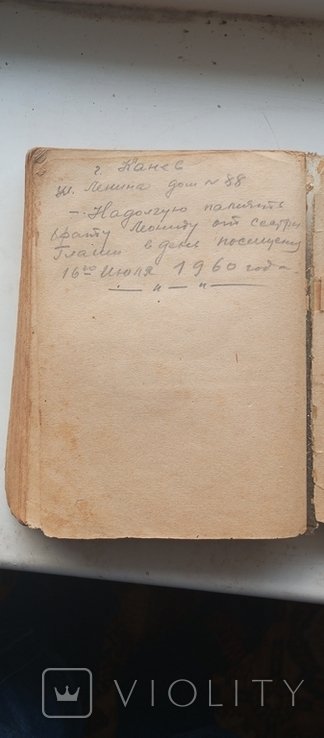 г. Канев
ул. Ленина дом № 88
— На долгую память
брату Леониду от сестры
Глаши в день посещения
16го Июля 1960 года.
— " — " —
VIOLITY